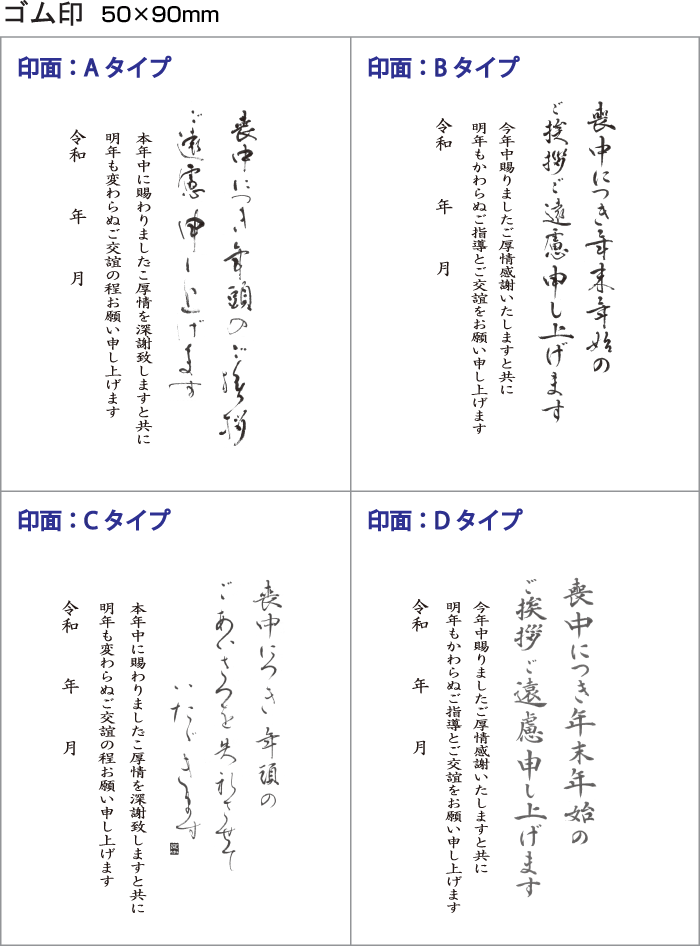 ゴム印 50×90mm
印面：Aタイプ
喪中につき年頭のご挨拶
ご遠慮申し上げます
本年中に賜わりましたご厚情を深謝致しますと共に
明年も変わらぬご交誼の程お願い申し上げます
令和 年 月
印面：Bタイプ
喪中につき年末年始の
ご挨拶ご遠慮申し上げます
今年中賜りましたご厚情感謝いたしますと共に
明年もかわらぬご指導とご交誼をお願い申し上げます
令和 年 月
印面：Cタイプ
喪中につき年頭の
ごあいさつを失礼させて
いただきます
本年中に賜わりましたご厚情を深謝致しますと共に
明年も変わらぬご交誼の程お願い申し上げます
令和 年 月
印面：Dタイプ
喪中につき年末年始の
ご挨拶ご遠慮申し上げます
今年中賜りましたご厚情感謝いたしますと共に
明年もかわらぬご指導とご交誼をお願い申し上げます
令和 年 月